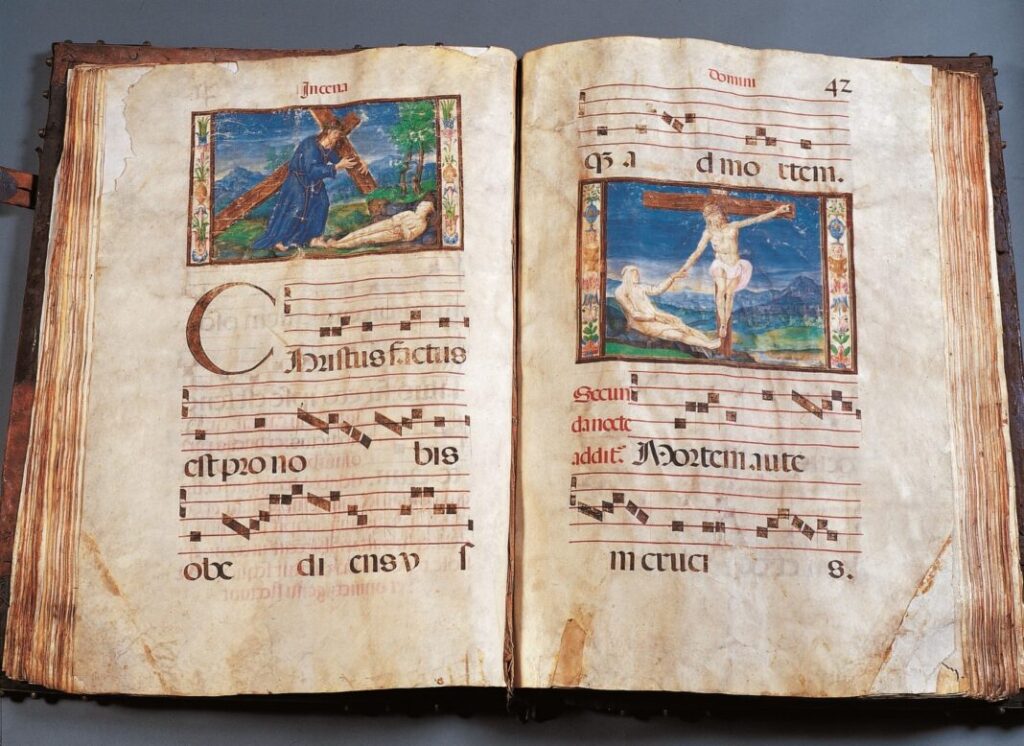 In cena
Christus factus
est pro no bis
obe di ens v ſ
Domini 42
qꝫ a d mo rtem.
Secun
da nocte
addit᷑ Mortem aute
in cruci s.